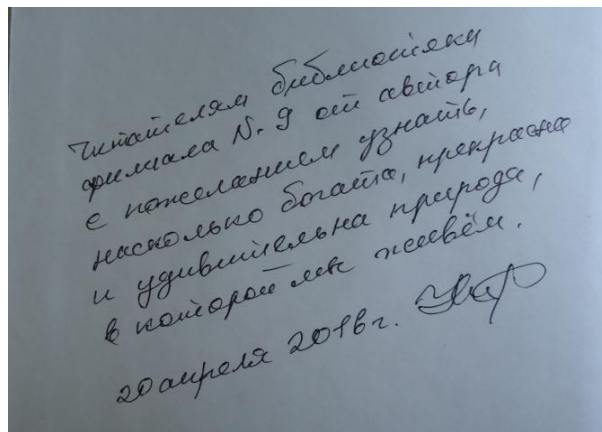 Читателям библиотеки
филиала N. 9 от автора
с пожеланием узнать,
насколько богата, прекрасна
и удивительна природа,
в которой мы живём.
20 апреля 2016 г.